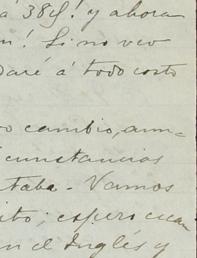 á 38 ! y ahora
n! Si no veo
daré á todo costo
o cambio, aun-
cunstancias
taba - Vamos
ito; espero
n el Inglés y